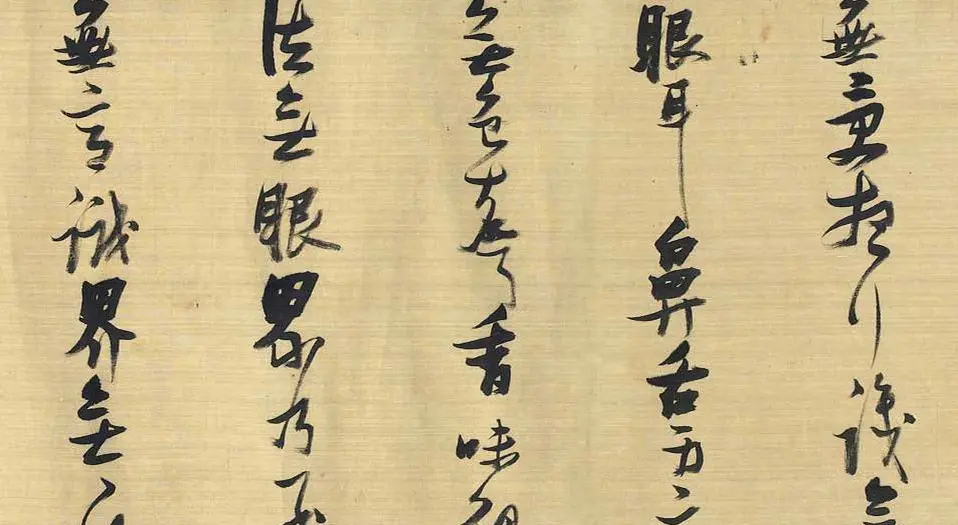 無受想行識無
眼耳鼻舌身意
無色聲香味觸
法無眼界乃至
無意識界無